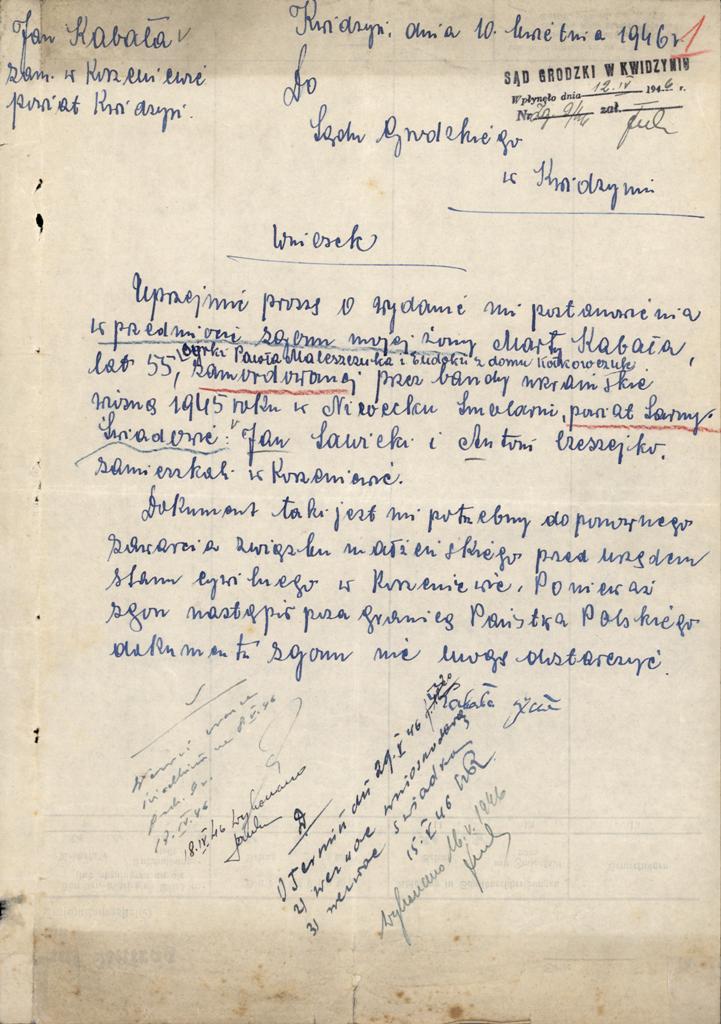 Jan Kabała
zam. w Korzeniewie
powiat Kwidzyń.
Kwidzyń, dnia 10. kwietnia 1946 r.
1
SĄD GRODZKI W KWIDZYNIU
Wpłynęło dnia 12.IV 1946 r.
Nr zał.
Do
Sądu Grodzkiego
w Kwidzyniu
Wniosek
Uprzejmie proszę o wydanie mi postanowienia
w przedmiocie zgonu mojej żony Marty Kabała,
córki Pawła Maleszczuka i Eudoki z domu
lat 55, zamordowanej przez bandy ukraińskie
wiosną 1945 roku w Niwecku Smolarni, powiat Sarny.
Świadowie: Jan Sawicki i Antoni Czeszejko.
zamieszkali w Korzeniewie.
Dokument taki jest mi potrzebny do ponownego
zawarcia związku małżeńskiego przed urzędem
stanu cywilnego w Korzeniewie. Ponieważ
zgon nastąpił poza granicą Państwa Polskiego
dokumentu zgonu nie mogę dostarczyć.
Kabała Jan
18.IV 46 wykonano
1) termin dn 29.V 46
2) wezwać wnioskodawcę
3) wezwać świadka
15.V 46
wykonano 16.V.1946